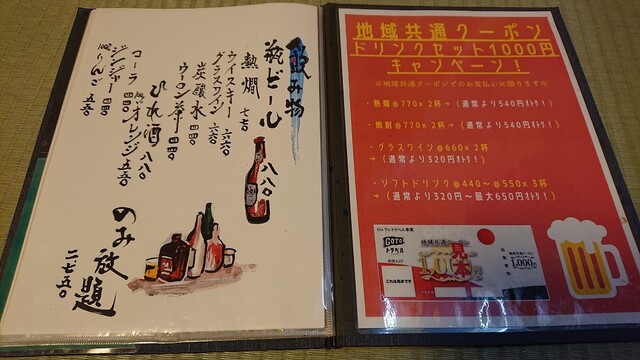 飲み物
瓶ビール 八八〇
熱燗 七七〇
ウイスキー 六六〇
グラスワイン 六六〇
炭酸水 四四〇
ウーロン茶 四四〇
ひれ酒 八八〇
コーラ 四四〇 オレンジ 五五〇
ジンジャー 四四〇
りんご 五五〇
のみ放題
二七五〇
地域共通クーポン
ドリンクセット1000円
キャンペーン！
※地域共通クーポンでのお支払いに限ります※
・熱燗@770×2杯→(通常より540円ｵﾄｸ！)
・焼酎@770×2杯→(通常より540円ｵﾄｸ！)
・グラスワイン@660×2杯
→(通常より320円ｵﾄｸ！)
・ソフトドリンク@440～@550×3杯
→(通常より320円～最大650円ｵﾄｸ！)
Go To トラベル事業
GOTO
トラベル
地域共通クーポン
見本
1,000
これは見本です